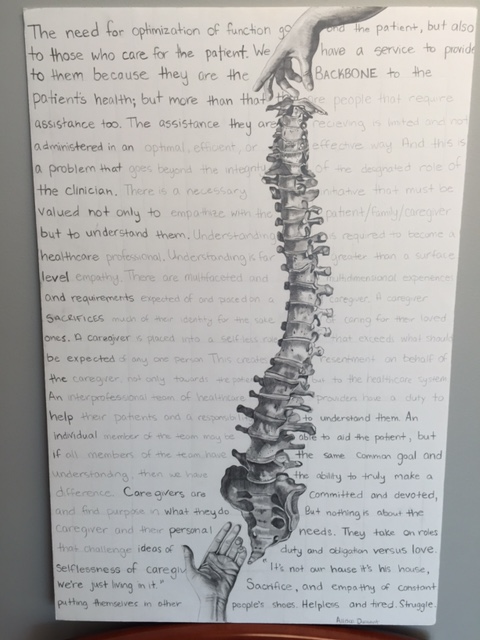 The need for optimization of function go and the patient, but also
to those who care for the patient. We have a service to provide
to them because they are the BACKBONE to the
patient's health; but more than that they are people that require
assistance too. The assistance they are recieving is limited and not
administered in an optimal, efficent, or effective way. And this is
a problem that goes beyond the integrity of the designated role of
the clinician. There is a necessary initiative that must be
valued not only to empathize with the patient/family/caregiver
but to understand them. Understanding is required to become a
healthcare professional. Understanding is far greater than a surface
level empathy. There are multifaceted and multidimensional experiences
and requirements expected of and placed on a caregiver. A caregiver
SACRIFICES much of their identity for the sake caring for their loved
ones. A caregiver is placed into a selfless role that exceeds what should
be expected of any one person. This creates resentment on behalf of
the caregiver not only towards the patient but to the healthcare system
An interprofessional team of healthcare providers have a duty to
help their patients and a responsibility to understand them. An
individual member of the team may be able to aid the patient, but
if all members of the team have the same common goal and
understanding, then we have the ability to truly make a
difference. Caregivers are committed and devoted,
and find purpose in what they do But nothing is about the
caregiver and their personal needs. They take on roles
that challenge ideas of duty and obligation versus love.
Selflessness of caregiv "It's not our house it's his house,
we're just living in it." Sacrifice, and empathy of constant
putting themselves in other people's shoes. Helpless and tired. Struggle.